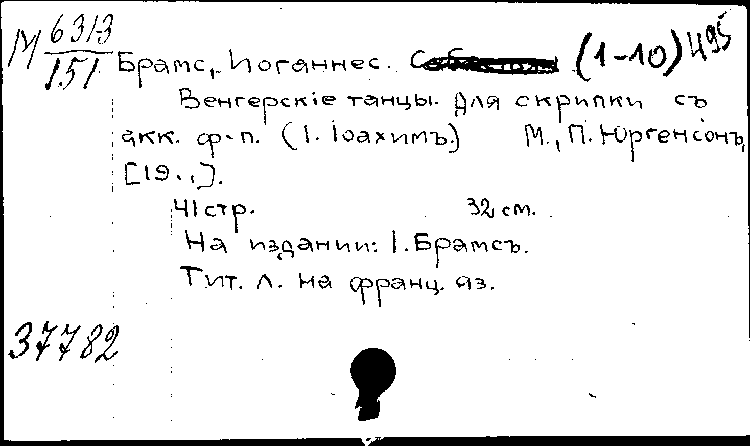 М 6313/151
Брамс, Иоганнес. (1-10) 495
Венгерскіе танцы. Для скрипки съ
акк. ф-п. (І. Іоахимъ.) М., П. Юргенсонъ,
[19..].
41 стр. 32 см.
На издании: І. Брамсъ.
Тит. л. на франц. яз.
37782